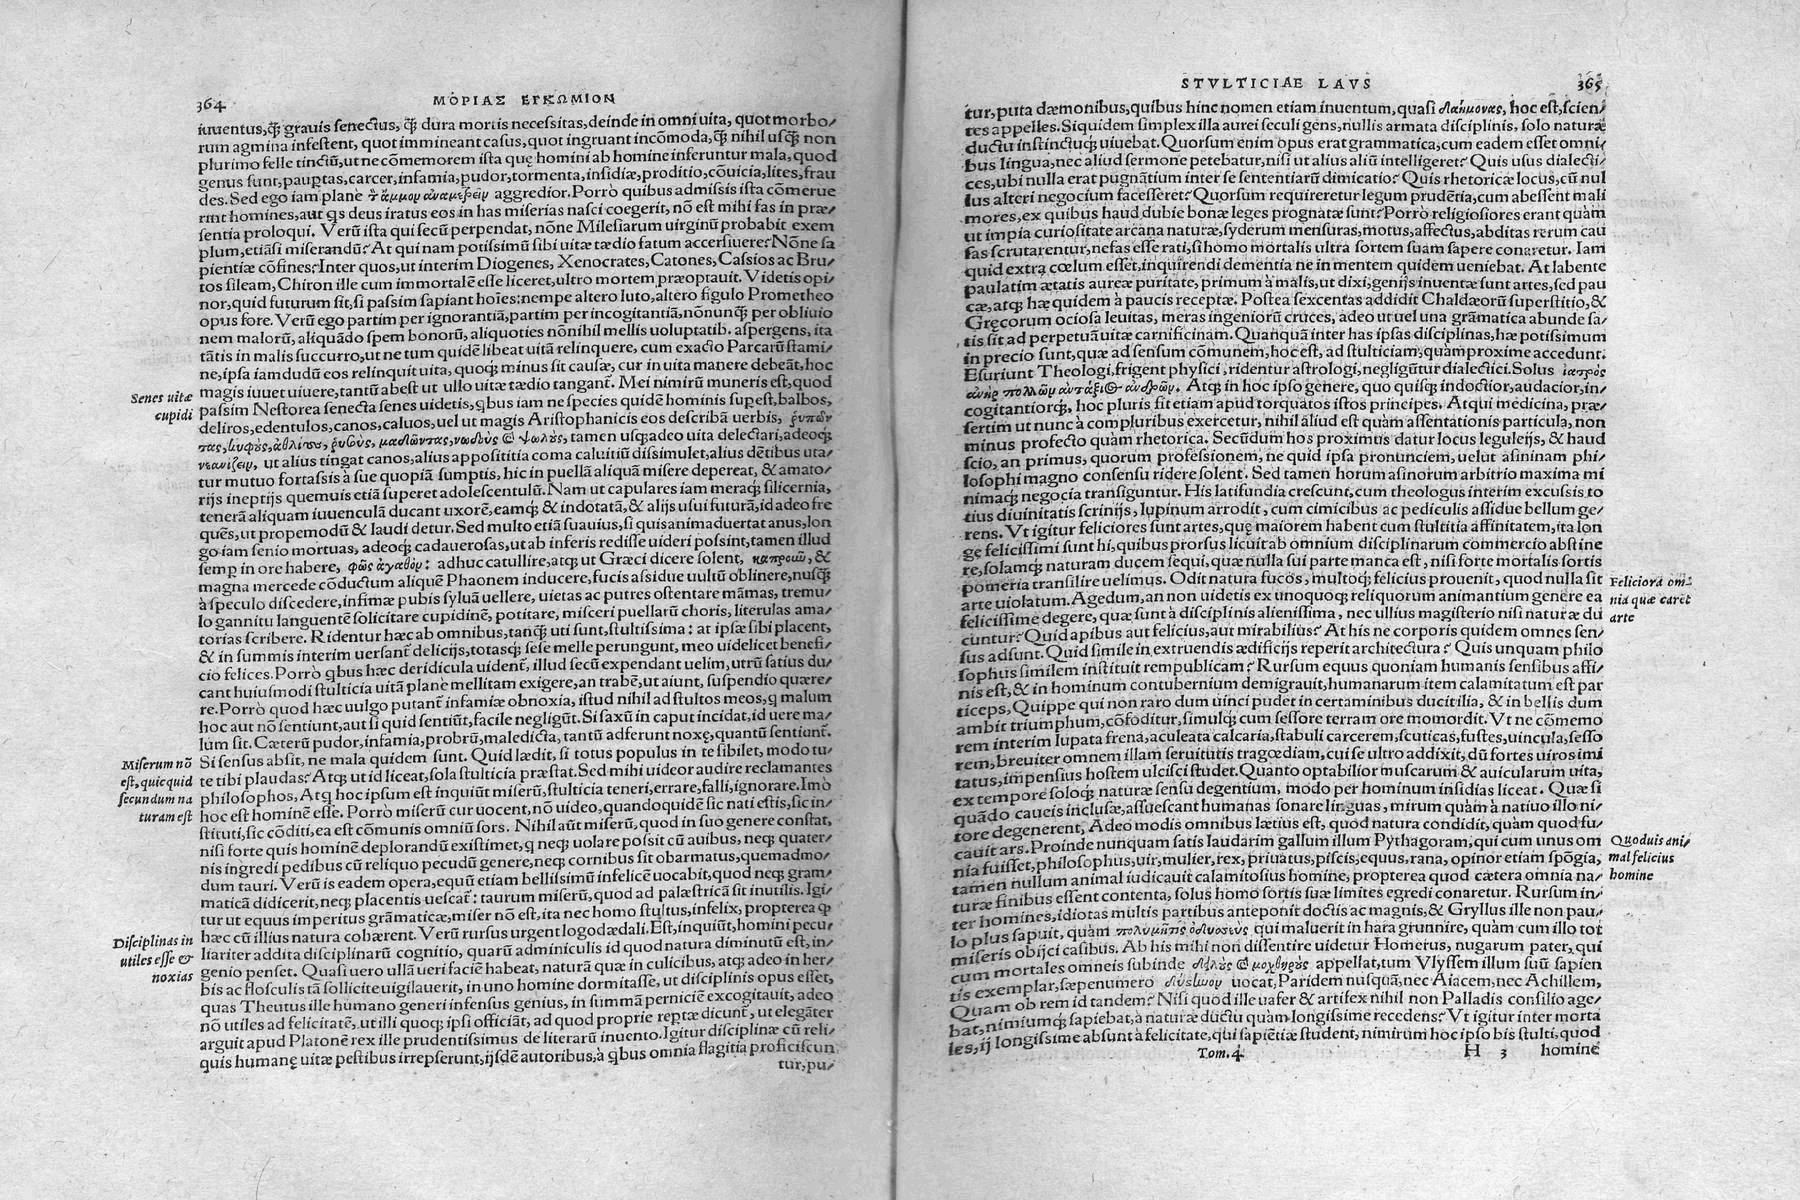 364 ΜΩΡΙΑΣ ΕΓΚΩΜΙΟΝ
iuuentus,q̃ grauis senectus, q̃ dura mortis necessitas,deinde in omni uita, quot morbo/
rum agmina infestent, quot immineant casus, quot ingruant incōmoda,q̃ nihil usq̃ non
plurimo felle tinctũ,ut ne cōmemorem ista quę homini ab homine inferuntur mala, quod
genus sunt,paup̱tas,carcer,infamia,pudor,tormenta,insidiæ,proditio,cōuicia,lites,frau
des. Sed ego iam plane τ̀ ἄμμον ἀναμετρεῖν aggredior. Porrò quibus admissis ista cōmerue
rint homines, aut q̱s deus iratus eos in has miserias nasci coegerit, nō est mihi fas in præ/
sentia proloqui. Verũ ista qui secũ perpendat, nōne Milesiarum uirginũ probabit exem
plum,etiãsi miserandũ? At qui nam potissimũ sibi uitæ tædio fatum accersiuere? Nōne sa
pientiæ cōfines? Inter quos,ut interim Diogenes, Xenocrates, Catones, Cassios ac Bru/
tos sileam, Chiron ille cum immortalē esse liceret,ultro mortem præoptauit. Videtis opi/
nor,quid futurum sit,si passim sapiant hoīes:nempe altero luto,altero figulo Prometheo
opus fore. Verũ ego partim per ignorantiã,partim per incogitantiã,nōnunq̃ per obliuio
nem malorũ, aliquãdo spem bonorũ, aliquoties nōnihil mellis uoluptatib. aspergens, ita
tãtis in malis succurro,ut ne tum quidē libeat uitã relinquere, cum exacto Parcarũ stami/
ne,ipsa iamdudũ eos relinquit uita, quoq; minus sit causæ, cur in uita manere debeãt,hoc
Senes uitæ
cupidi
magis iuuet uiuere,tantũ abest ut ullo uitæ tædio tangant̃. Mei nimirũ muneris est,quod
passim Nestorea senecta senes uidetis,q̱bus iam ne species quidē hominis sup̱est,balbos,
deliros,edentulos,canos,caluos,uel ut magis Aristophanicis eos describã uerbis, ῥυπῶν
τας,κυφὸς,ἀθλίους,ῥυσοὺς, μαδῶντας,νωδοὺς & ψωλοὺς, tamen usq;adeo uita delectari,adeoq;
νεανίζειν, ut alius tingat canos,alius apposititia coma caluitiũ dissimulet,alius dētibus uta/
tur mutuo fortassis à sue quopiã sumptis, hic in puellã aliquã misere depereat, & amato/
rijs ineptijs quemuis etiã superet adolescentulũ. Nam ut capulares iam meraq; silicernia,
tenerã aliquam iuuenculã ducant uxorē,eamq; & indotatã, & alijs usui futurã,id adeo fre
quēs,ut propemodũ & laudi detur. Sed multo etiã suauius,si quis animaduertat anus,lon
go iam senio mortuas, adeoq; cadauerosas,ut ab inferis redisse uideri possint,tamen illud
semp̱ in ore habere, φῶς ἀγαθόν: adhuc catullire,atq; ut Græci dicere solent, καπροῦν, &
magna mercede cōductum aliquē Phaonem inducere,fucis assidue uultũ oblinere,nusq̃
à speculo discedere,infimæ pubis syluã uellere, uietas ac putres ostentare mãmas, tremu/
lo gannitu languentē solicitare cupidinē, potitare, misceri puellarũ choris, literulas ama/
torias scribere. Ridentur hæc ab omnibus,tanq̃ uti sunt,stultissima: at ipsæ sibi placent,
& in summis interim uersant̃ delicijs,totasq; sese melle perungunt, meo uidelicet benefi/
cio felices. Porrò q̱bus hæc deridicula uident̃, illud secũ expendant uelim,utrũ satius du/
cant huiusmodi stulticia uitã plane mellitam exigere,an trabē,ut aiunt, suspendio quære/
re. Porrò quod hæc uulgo putant̃ infamiæ obnoxia, istud nihil ad stultos meos,q malum
hoc aut nō sentiunt,aut si quid sentiũt,facile negligũt. Si saxũ in caput incidat,id uere ma/
lum sit. Cæterũ pudor,infamia,probrũ,maledicta, tantũ adferunt noxę,quantũ sentiunt̃.
Miserum nō
est,quicquid
secundum na
turam est
Si sensus absit, ne mala quidem sunt. Quid lædit, si totus populus in te sibilet, modo tu/
te tibi plaudas? Atq; ut id liceat,sola stulticia præstat. Sed mihi uideor audire reclamantes
philosophos, Atq hoc ipsum est inquiũt miserũ,stulticia teneri,errare,falli,ignorare. Imò
hoc est hominē esse. Porrò miserũ cur uocent, nō uideo,quandoquidē sic nati estis,sic in/
stituti,sic cōditi,ea est cōmunis omniũ sors. Nihil aũt miserũ,quod in suo genere constat,
nisi forte quis hominē deplorandũ existimet,q neq; uolare possit cũ auibus, neq; quater/
nis ingredi pedibus cũ reliquo pecudũ genere,neq; cornibus sit obarmatus,quemadmo/
dum tauri. Verũ is eadem opera,equũ etiam bellissimũ infelicē uocabit,quod neq; gram/
maticã didicerit,neq; placentis uescat̃: taurum miserũ,quod ad palæstricã sit inutilis. Igi/
tur ut equus imperitus grãmaticæ,miser nō est,ita nec homo stultus,infelix, propterea q
Disciplinas in
utiles esse &
noxias
hæc cũ illius natura cohærent. Verũ rursus urgent logodædali. Est,inquiũt,homini pecu/
liariter addita disciplinarũ cognitio, quarũ adminiculis id quod natura diminutũ est,in/
genio penset. Quasi uero ullã ueri faciē habeat, naturã quæ in culicibus, atq; adeo in her/
bis ac flosculis tã sollicite uigilauerit, in uno homine dormitasse, ut disciplinis opus esset,
quas Theutus ille humano generi infensus genius, in summã perniciē excogitauit, adeo
nō utiles ad felicitatē,ut illi quoq; ipsi officiãt, ad quod proprie reptæ dicunt̃, ut elegãter
arguit apud Platonē rex ille prudentissimus de literarũ inuento. Igitur disciplinæ cũ reli/
quis humanę uitæ pestibus irrepserunt,ijsdē autoribus,à q̱bus omnia flagitia proficiscun
tur,pu/
STVLTICIAE LAVS 365
tur,puta dæmonibus,quibus hinc nomen etiam inuentum,quasi δαήμονας, hoc est,scien/
tes appelles. Siquidem simplex illa aurei seculi gens,nullis armata disciplinis, solo naturæ
ductu instinctuq; uiuebat. Quorsum enim opus erat grammatica,cum eadem esset omni/
bus lingua,nec aliud sermone petebatur,nisi ut alius aliũ intelligeret? Quis usus dialecti/
ces,ubi nulla erat pugnãtium inter se sententiarũ dimicatio? Quis rhetoricæ locus,cũ nul
lus alteri negocium facesseret? Quorsum requireretur legum prudētia,cum abessent mali
mores,ex quibus haud dubie bonæ leges prognatæ sunt? Porrò religiosiores erant quàm
ut impia curiositate arcana naturæ,syderum mensuras,motus,affectus,abditas rerum cau
sas scrutarentur,nefas esse rati,si homo mortalis ultra sortem suam sapere conaretur. Iam
quid extra cœlum esset,inquirendi dementia ne in mentem quidem ueniebat. At labente
paulatim ætatis aureæ puritate, primum à malis,ut dixi,genijs inuentæ sunt artes,sed pau
cæ,atq; hæ quidem à paucis receptæ. Postea sexcentas addidit Chaldæorũ superstitio,&
Gręcorum ociosa leuitas, meras ingeniorũ cruces, adeo ut uel una grãmatica abunde sa/
tis sit ad perpetuã uitæ carnificinam. Quanquã inter has ipsas disciplinas,hæ potissimum
in precio sunt,quæ ad sensum cōmunem,hoc est, ad stulticiam,quàm proxime accedunt.
Esuriunt Theologi,frigent physici,ridentur astrologi,negligũtur dialectici. Solus ἰατρὸς
ἀνὴρ πολλῶν ἀντάξιος ἀνδρῶν. Atq; in hoc ipso genere, quo quisq; indoctior,audacior,in/
cogitantiorq;, hoc pluris fit etiam apud torquatos istos principes. Atqui medicina, præ/
sertim ut nunc à compluribus exercetur, nihil aliud est quàm assentationis particula, non
minus profecto quàm rhetorica. Secũdum hos proximus datur locus leguleijs, & haud
scio, an primus, quorum professionem, ne quid ipsa pronunciem, uelut asininam phi/
losophi magno consensu ridere solent. Sed tamen horum asinorum arbitrio maxima mi
nimaq; negocia transiguntur. His latifundia crescunt,cum theologus interim excussis to
tius diuinitatis scrinijs, lupinum arrodit, cum cimicibus ac pediculis assidue bellum ge/
rens. Vt igitur feliciores sunt artes,quę maiorem habent cum stultitia affinitatem,ita lon
ge felicissimi sunt hi,quibus prorsus licuit ab omnium disciplinarum commercio abstine
re,solamq; naturam ducem sequi,quæ nulla sui parte manca est, nisi forte mortalis sortis
pomeria transilire uelimus. Odit natura fucos, multoq; felicius prouenit, quod nulla sit
Feliciora om=
nia quæ carēt
arte
arte uiolatum. Agedum,an non uidetis ex unoquoq; reliquorum animantium genere ea
felicissime degere, quæ sunt à disciplinis alienissima, nec ullius magisterio nisi naturæ du
cuntur? Quid apibus aut felicius,aut mirabilius? At his ne corporis quidem omnes sen/
sus adsunt. Quid simile in extruendis ædificijs reperit architectura? Quis unquam philo
sophus similem instituit rempublicam? Rursum equus quoniam humanis sensibus affi/
nis est,& in hominum contubernium demigrauit,humanarum item calamitatum est par
ticeps, Quippe qui non raro dum uinci pudet in certaminibus ducit ilia, & in bellis dum
ambit triumphum,cōfoditur,simulq; cum sessore terram ore momordit. Vt ne cōmemo
rem interim lupata frena,aculeata calcaria,stabuli carcerem,scuticas,fustes,uincula,sesso
rem,breuiter omnem illam seruitutis tragœdiam,cui se ultro addixit,dũ fortes uiros imi
tatus,impensius hostem ulcisci studet. Quanto optabilior muscarum & auicularum uita,
ex tempore soloq; naturæ sensu degentium, modo per hominum insidias liceat. Quæ si
quãdo caueis inclusæ,assuescant humanas sonare linguas, mirum quàm à natiuo illo ni/
tore degenerent, Adeo modis omnibus lætius est, quod natura condidit, quàm quod fu/
cauit ars. Proinde nunquam satis laudarim gallum illum Pythagoram,qui cum unus om
Quoduis ani/
mal felicius
homine
nia fuisset,philosophus,uir,mulier,rex,priuatus,piscis,equus,rana, opinor etiam spōgia,
tamen nullum animal iudicauit calamitosius homine, propterea quod cætera omnia na/
turæ finibus essent contenta, solus homo sortis suæ limites egredi conaretur. Rursum in/
ter homines,idiotas multis partibus anteponit doctis ac magnis,& Gryllus ille non pau/
lo plus sapuit, quàm πολύμητις ὀδυσσεὺς qui maluerit in hara grunnire, quàm cum illo tot
miseris obijci casibus. Ab his mihi non dissentire uidetur Homerus, nugarum pater,qui
cum mortales omneis subinde δειλοὺς & μοχθηροὺς appellat,tum Vlyssem illum suũ sapien
tis exemplar,sæpenumero δύστηνον uocat,Paridem nusquã,nec Aiacem,nec Achillem,
Quam ob rem id tandem? Nisi quod ille uafer & artifex nihil non Palladis consilio age/
bat,nimiumq; sapiebat,à naturæ ductu quàm longissime recedens? Vt igitur inter morta
les,ij longissime absunt à felicitate,qui sapiētiæ student, nimirum hoc ipso bis stulti,quod
Tom. 4. H 3 hominē